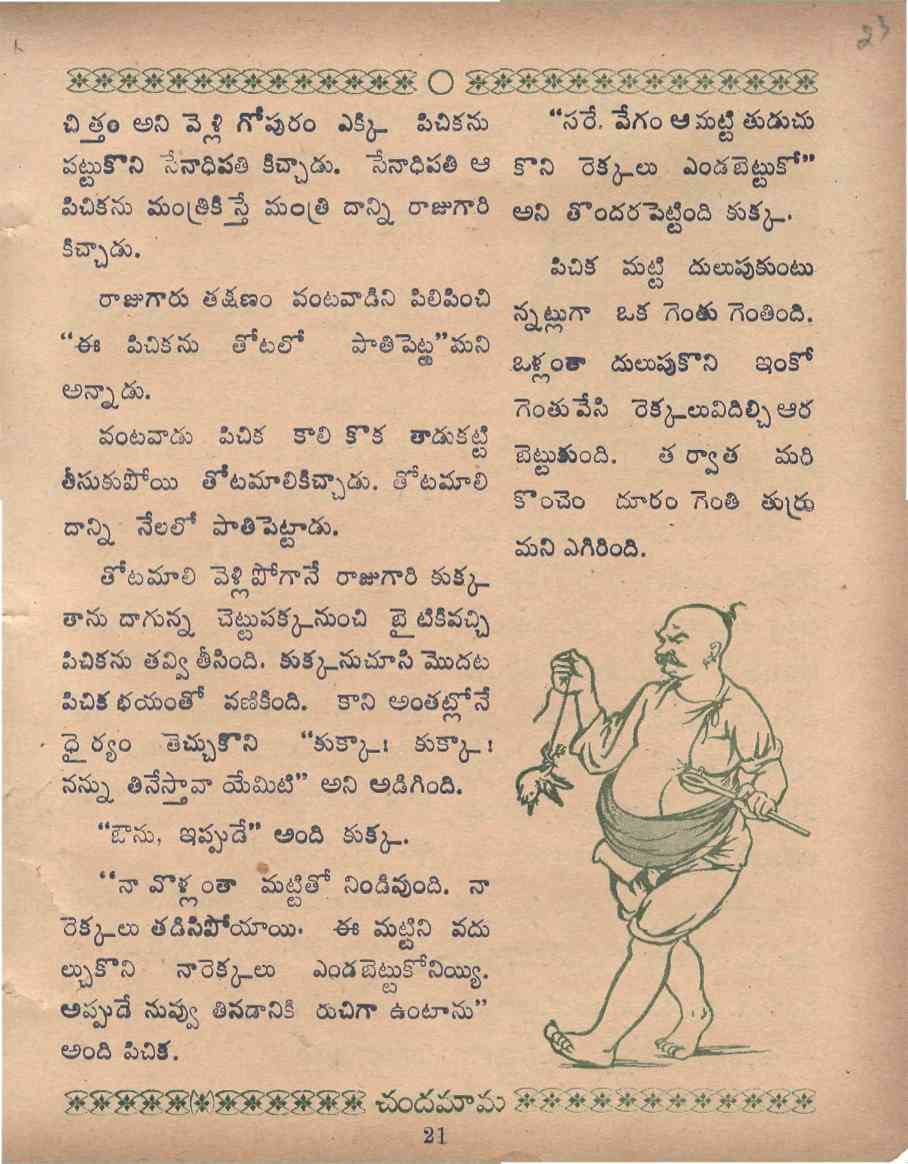 23
చిత్తం అని వెళ్లి గోపురం ఎక్కి పిచికను
పట్టుకొని సేనాధిపతి కిచ్చాడు. సేనాధిపతి ఆ
పిచికను మంత్రికి స్తే మంత్రి దాన్ని రాజుగారి
కిచ్చాడు.
రాజుగారు తక్షణం వంటవాడిని పిలిపించి
“ఈ పిచికను తోటలో పాతిపెట్ట”మని
అన్నాడు.
వంటవాడు పిచిక కాలి కొక తాడుకట్టి
తీసుకుపోయి తోటమాలికిచ్చాడు. తోటమాలి
దాన్ని నేలలో పాతిపెట్టాడు.
తోటమాలి వెళ్లిపోగానే రాజుగారి కుక్క
తాను దాగున్న చెట్టుపక్కనుంచి బైటికివచ్చి
పిచికను తవ్వి తీసింది. కుక్కనుచూసి మొదట
పిచిక భయంతో వణికింది. కాని అంతట్లోనే
ధైర్యం తెచ్చుకొని “కుక్కా! కుక్కా!
నన్ను తినేస్తావా యేమిటి” అని అడిగింది.
“ఔను, ఇప్పుడే” అంది కుక్క.
“నా వొళ్లంతా మట్టితో నిండివుంది. నా
రెక్కలు తడిసిపోయాయి. ఈ మట్టిని వదు
ల్చుకొని నారెక్కలు ఎండబెట్టుకోనియ్యి.
అప్పుడే నువ్వు తినడానికి రుచిగా ఉంటాను”
అంది పిచిక.
“సరే. వేగం ఆ మట్టి తుడుచు
కొని రెక్కలు ఎండబెట్టుకో”
అని తొందరపెట్టింది కుక్క.
పిచిక మట్టి దులుపుకుంటు
న్నట్లుగా ఒక గెంతు గెంతింది.
ఒళ్లంతా దులుపుకొని ఇంకో
గెంతువేసి రెక్కలువిదిల్చి ఆర
బెట్టుకుంది. తర్వాత మరి
కొంచెం దూరం గెంతి తుర్రు
మని ఎగిరింది.
చందమామ
21